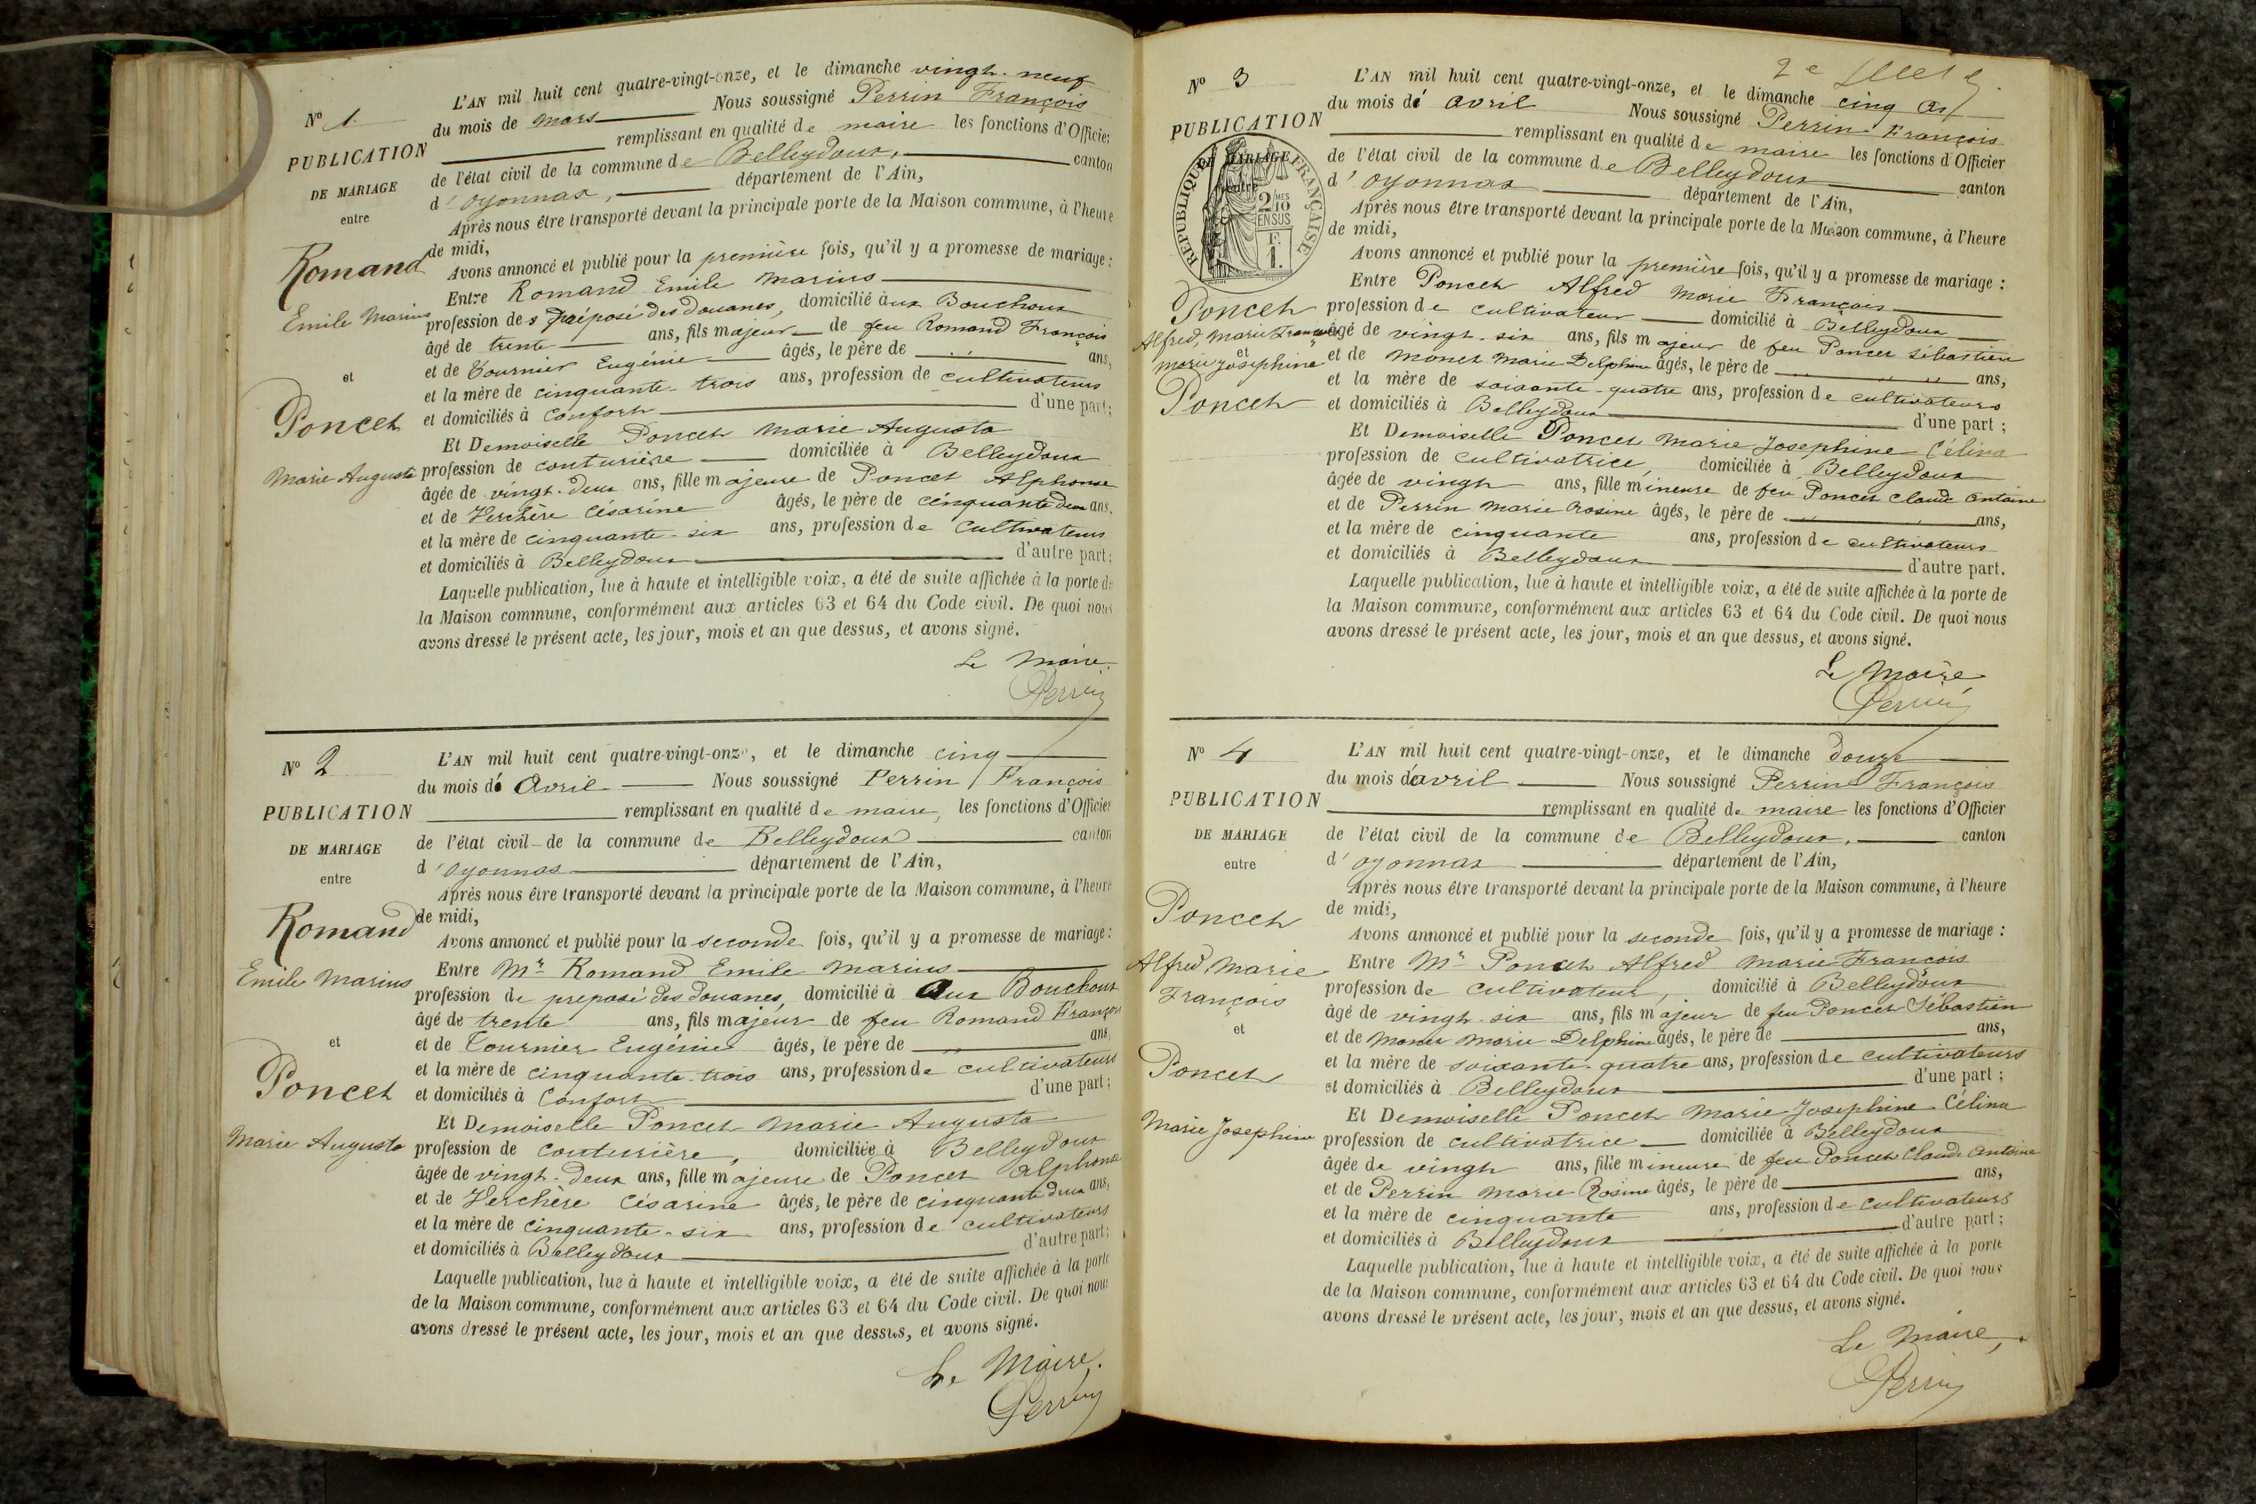 Nº 1
PUBLICATION
DE MARIAGE
entre
Romand
Emile Marius
et
Poncet
Marie Augusta
L'AN mil huit cent quatre-vingt-onze, et le dimanche vingt-neuf
du mois de mars Nous soussigné Perrin François
remplissant en qualité de maire les fonctions d'Officier
de l'état civil de la commune de Belleydoux, canton
d'oyonnax, département de l'Ain,
Après nous être transporté devant la principale porte de la Maison commune, à l'heure
de midi,
Avons annoncé et publié pour la première fois, qu'il y a promesse de mariage :
Entre Romand Emile Marius
profession des préposé des douanes, domicilié aux Bouchoux
âgé de trente ans, fils majeur de feu Romand François
et de Tournier Eugénie âgés, le père de ans,
et la mère de cinquante-trois ans, profession de cultivateurs
et domiciliés à Confort d'une part ;
Et Demoiselle Poncet Marie Augusta
profession de couturière domiciliée à Belleydoux
âgée de vingt-deux ans, fille majeure de Poncet Alphonse
et de Verchère Césarine âgés, le père de cinquante deux ans,
et la mère de cinquante-six ans, profession de cultivateurs
et domiciliés à Belleydoux d'autre part ;
Laquelle publication, lue à haute et intelligible voix, a été de suite affichée à la porte de
la Maison commune, conformément aux articles 63 et 64 du Code civil. De quoi nous
avons dressé le présent acte, les jour, mois et an que dessus, et avons signé.
Le Maire.
Perrin
Nº 2
PUBLICATION
DE MARIAGE
entre
Romand
Emile Marius
et
Poncet
Marie Augusta
L'AN mil huit cent quatre-vingt-onze, et le dimanche cinq
du mois d'Avril Nous soussigné Perrin François
remplissant en qualité de maire, les fonctions d'Officier
de l'état civil de la commune de Belleydoux canton
d'oyonnax département de l'Ain,
Après nous être transporté devant la principale porte de la Maison commune, à l'heure
de midi,
Avons annoncé et publié pour la seconde fois, qu'il y a promesse de mariage :
Entre Mr Romand Emile Marius
profession de preposé des douanes, domicilié à Aux Bouchoux
âgé de trente ans, fils majeur de feu Romand François
et de Tournier Eugénie âgés, le père de ans,
et la mère de cinquante-trois ans, profession de cultivateurs
et domiciliés à Confort d'une part ;
Et Demoiselle Poncet Marie Augusta
profession de couturière, domiciliée à Belleydoux
âgée de vingt-deux ans, fille majeure de Poncet Alphonse
et de Verchère Césarine âgés, le père de cinquante deux ans,
et la mère de cinquante-six ans, profession de cultivateurs
et domiciliés à Belleydoux d'autre part ;
Laquelle publication, lue à haute et intelligible voix, a été de suite affichée à la porte
de la Maison commune, conformément aux articles 63 et 64 du Code civil. De quoi nous
avons dressé le présent acte, les jour, mois et an que dessus, et avons signé.
Le Maire.
Perrin
2e
Nº 3
PUBLICATION
DE MARIAGE
entre
RÉPUBLIQUE FRANÇAISE
2/10MES
EN SUS
F.
1.
Poncet
Alfred, Marie François
et
Marie Josephine
Poncet
L'AN mil huit cent quatre-vingt-onze, et le dimanche cinq
du mois d'avril Nous soussigné Perrin François
remplissant en qualité de maire les fonctions d'Officier
de l'état civil de la commune de Belleydoux canton
d'oyonnax département de l'Ain,
Après nous être transporté devant la principale porte de la Maison commune, à l'heure
de midi,
Avons annoncé et publié pour la première fois, qu'il y a promesse de mariage :
Entre Poncet Alfred Marie François
profession de cultivateur domicilié à Belleydoux
âgé de vingt-six ans, fils majeur de feu Poncet Sébastien
et de Monet Marie Delphine âgés, le père de ans,
et la mère de soixante-quatre ans, profession de cultivateurs
et domiciliés à Belleydoux d'une part ;
Et Demoiselle Poncet Marie Josephine Célina
profession de cultivatrice, domiciliée à Belleydoux
âgée de vingt ans, fille mineure de feu Poncet Claude Antoine
et de Perrin Marie Rosine âgés, le père de ans,
et la mère de cinquante ans, profession de cultivateurs
et domiciliés à Belleydoux d'autre part.
Laquelle publication, lue à haute et intelligible voix, a été de suite affichée à la porte de
la Maison commune, conformément aux articles 63 et 64 du Code civil. De quoi nous
avons dressé le présent acte, les jour, mois et an que dessus, et avons signé.
Le Maire
Perrin
Nº 4
PUBLICATION
DE MARIAGE
entre
Poncet
Alfred Marie
François
et
Poncet
Marie Josephine
L'AN mil huit cent quatre-vingt-onze, et le dimanche douze
du mois d'avril Nous soussigné Perrin François
remplissant en qualité de maire les fonctions d'Officier
de l'état civil de la commune de Belleydoux, canton
d'oyonnax département de l'Ain,
Après nous être transporté devant la principale porte de la Maison commune, à l'heure
de midi,
Avons annoncé et publié pour la seconde fois, qu'il y a promesse de mariage :
Entre Mr Poncet Alfred Marie François
profession de cultivateur, domicilié à Belleydoux
âgé de vingt-six ans, fils majeur de feu Poncet Sébastien
et de Monet Marie Delphine âgés, le père de ans,
et la mère de soixante-quatre ans, profession de cultivateurs
et domiciliés à Belleydoux d'une part ;
Et Demoiselle Poncet Marie Josephine Célina
profession de cultivatrice domiciliée à Belleydoux
âgée de vingt ans, fille mineure de feu Poncet Claude Antoine
et de Perrin Marie Rosine âgés, le père de ans,
et la mère de cinquante ans, profession de cultivateurs
et domiciliés à Belleydoux d'autre part ;
Laquelle publication, lue à haute et intelligible voix, a été de suite affichée à la porte
de la Maison commune, conformément aux articles 63 et 64 du Code civil. De quoi nous
avons dressé le présent acte, les jour, mois et an que dessus, et avons signé.
Le Maire,
Perrin